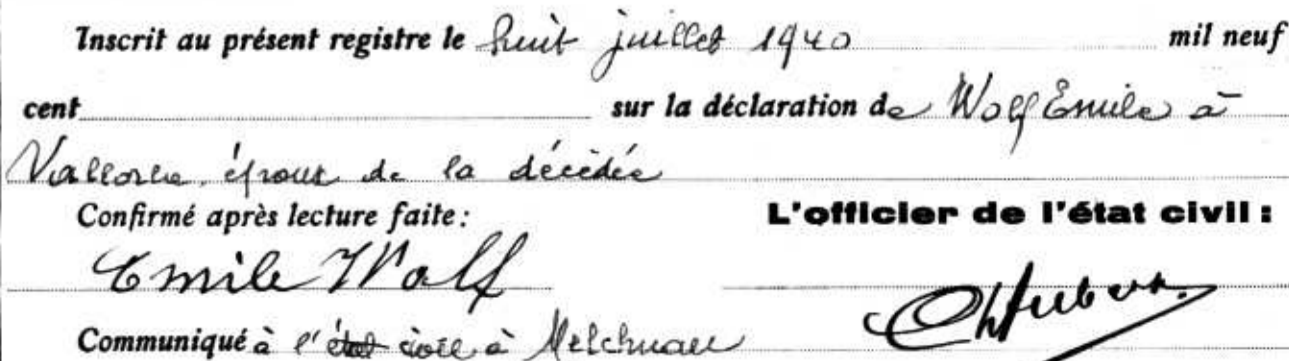 Inscrit au présent registre le huit juillet 1940 mil neuf
cent sur la déclaration de Wolf Emile à
Vallorbe, époux de la décédée
Confirmé après lecture faite : L'officier de l'état civil :
Emile Wolf
Communiqué à l'état civil à Melchnau